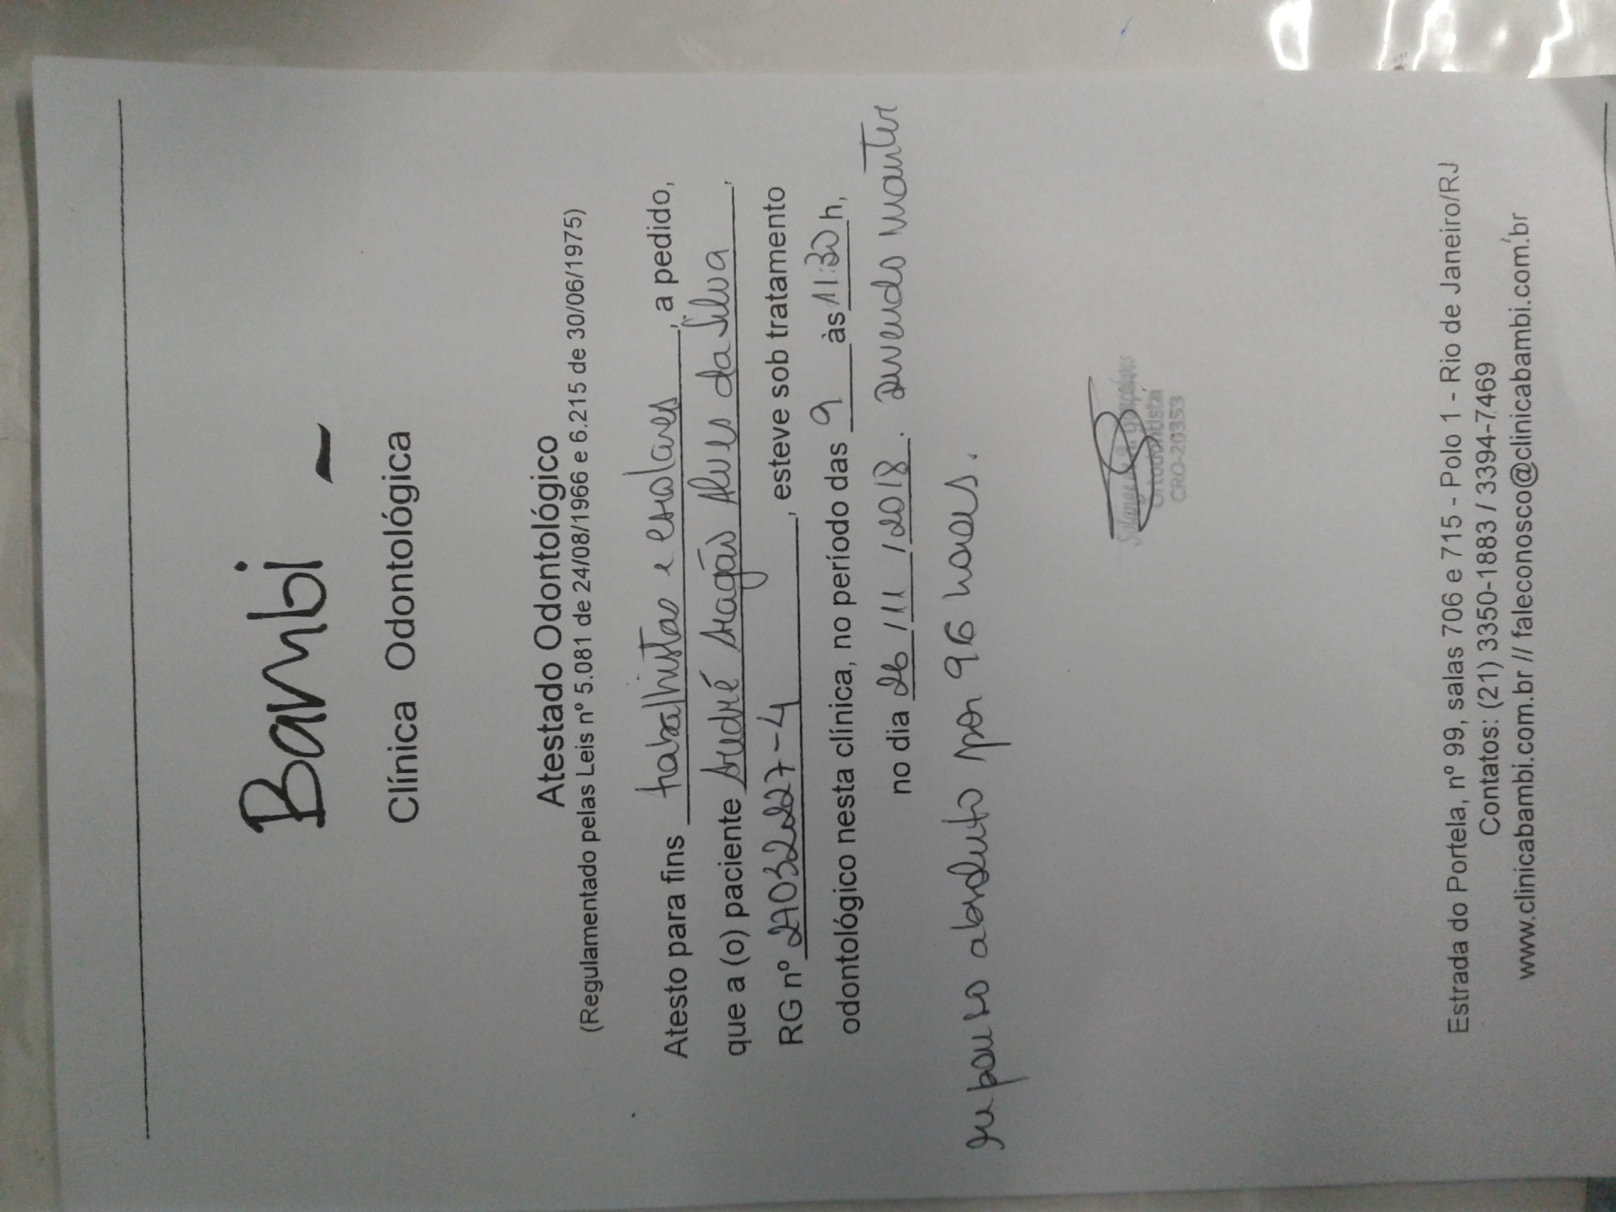 Bambi -
Clínica Odontológica
Atestado Odontológico
(Regulamentado pelas Leis nº 5.081 de 24/08/1966 e 6.215 de 30/06/1975)
Atesto para fins trabalhistas e escolares, a pedido,
que a (o) paciente André Aragão Alves da Silva,
RG nº 27032227-4, esteve sob tratamento
odontológico nesta clínica, no período das 9 às 11:30 h,
no dia 26/11/2018. devendo manter
repouso absoluto por 96 horas.
Ortodontista
CRO-20353
Estrada do Portela, nº 99, salas 706 e 715 - Polo 1 - Rio de Janeiro/RJ
Contatos: (21) 3350-1883 / 3394-7469
www.clinicabambi.com.br // faleconosco@clinicabambi.com.br